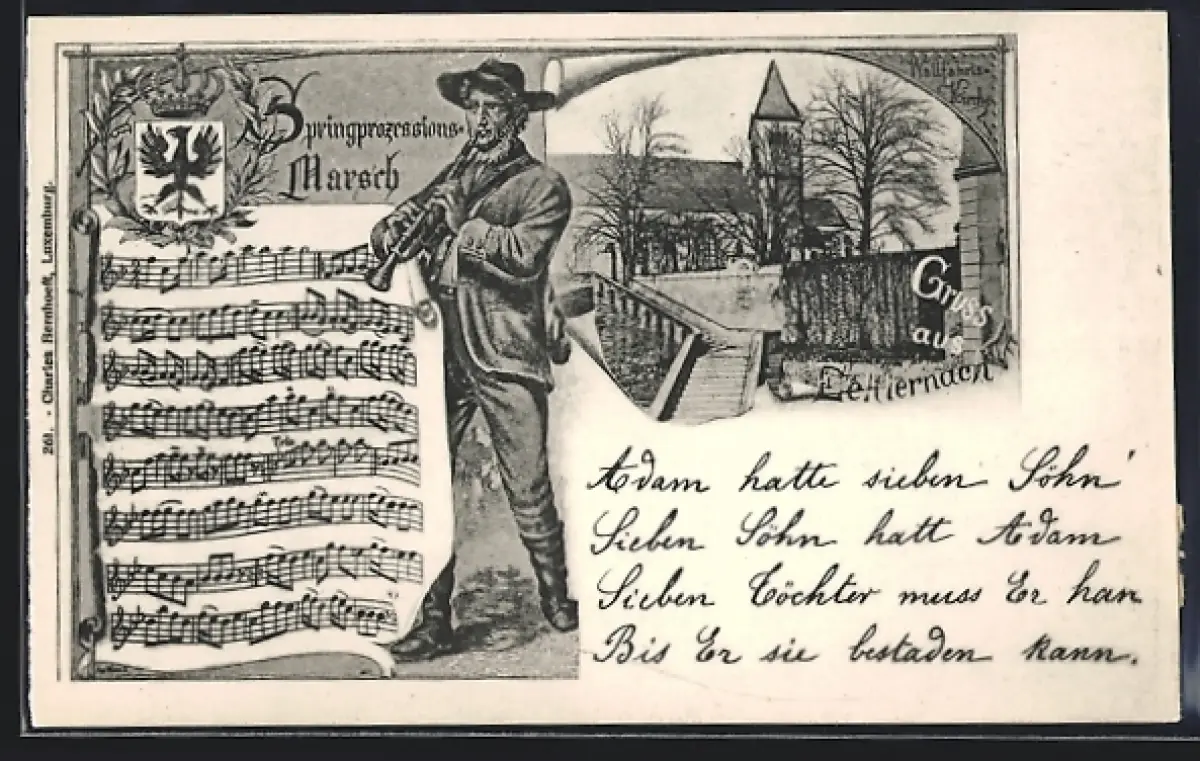 Springprozessions-
Marsch
Wallfahrts-
Kirche
Gruss
aus
Echternach
Trio
Adam hatte sieben Söhn'
Sieben Söhn hatt Adam
Sieben Töchter muss Er han
Bis Er sie bestaden kann.
268. - Charles Bernhoeft, Luxemburg.